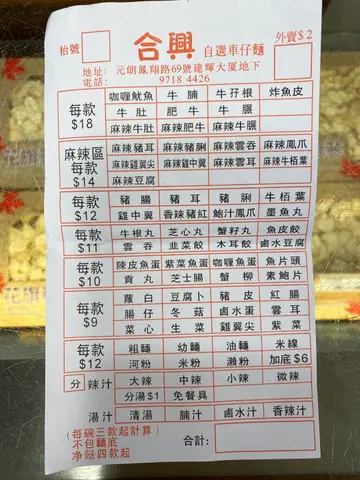 枱號 合興 自選車仔麵 外賣$2
地址: 元朗鳳翔路69號建輝大厦地下
電話: 9718 4426
每款 $18
咖喱魷魚 牛腩 牛孖根 炸魚皮
牛肚 肥牛 牛𦟌
麻辣牛肚 麻辣肥牛 麻辣牛𦟌
麻辣區 每款 $14
麻辣豬耳 麻辣豬脷 麻辣雲吞 麻辣鳳爪
麻辣雞翼尖 麻辣雞中翼 麻辣雲耳 麻辣牛栢葉
麻辣豆腐
每款 $12
豬腸 豬耳 豬脷 牛栢葉
雞中翼 香辣豬紅 鮑汁鳳爪 墨魚丸
每款 $11
牛根丸 芝心丸 蟹籽丸 魚皮餃
雲吞 韭菜餃 木耳餃 鹵水豆腐
每款 $10
陳皮魚蛋 紫菜魚蛋 咖喱魚蛋 魚片頭
貢丸 芝士腸 蟹柳 素鮑片
每款 $9
蘿白 豆腐卜 豬皮 紅腸
腸仔 冬菇 鹵水蛋 雲耳
菜心 生菜 雞翼尖 紫菜
每款 $12
粗麵 幼麵 油麵 米線
河粉 米粉 瀨粉 加底$6
分辣汁 大辣 中辣 小辣 微辣
分湯$1 免餐具
湯汁 清湯 腩汁 鹵水汁 香辣汁
(每碗三款起計算)
不包麵底
淨餸四款起
合計: